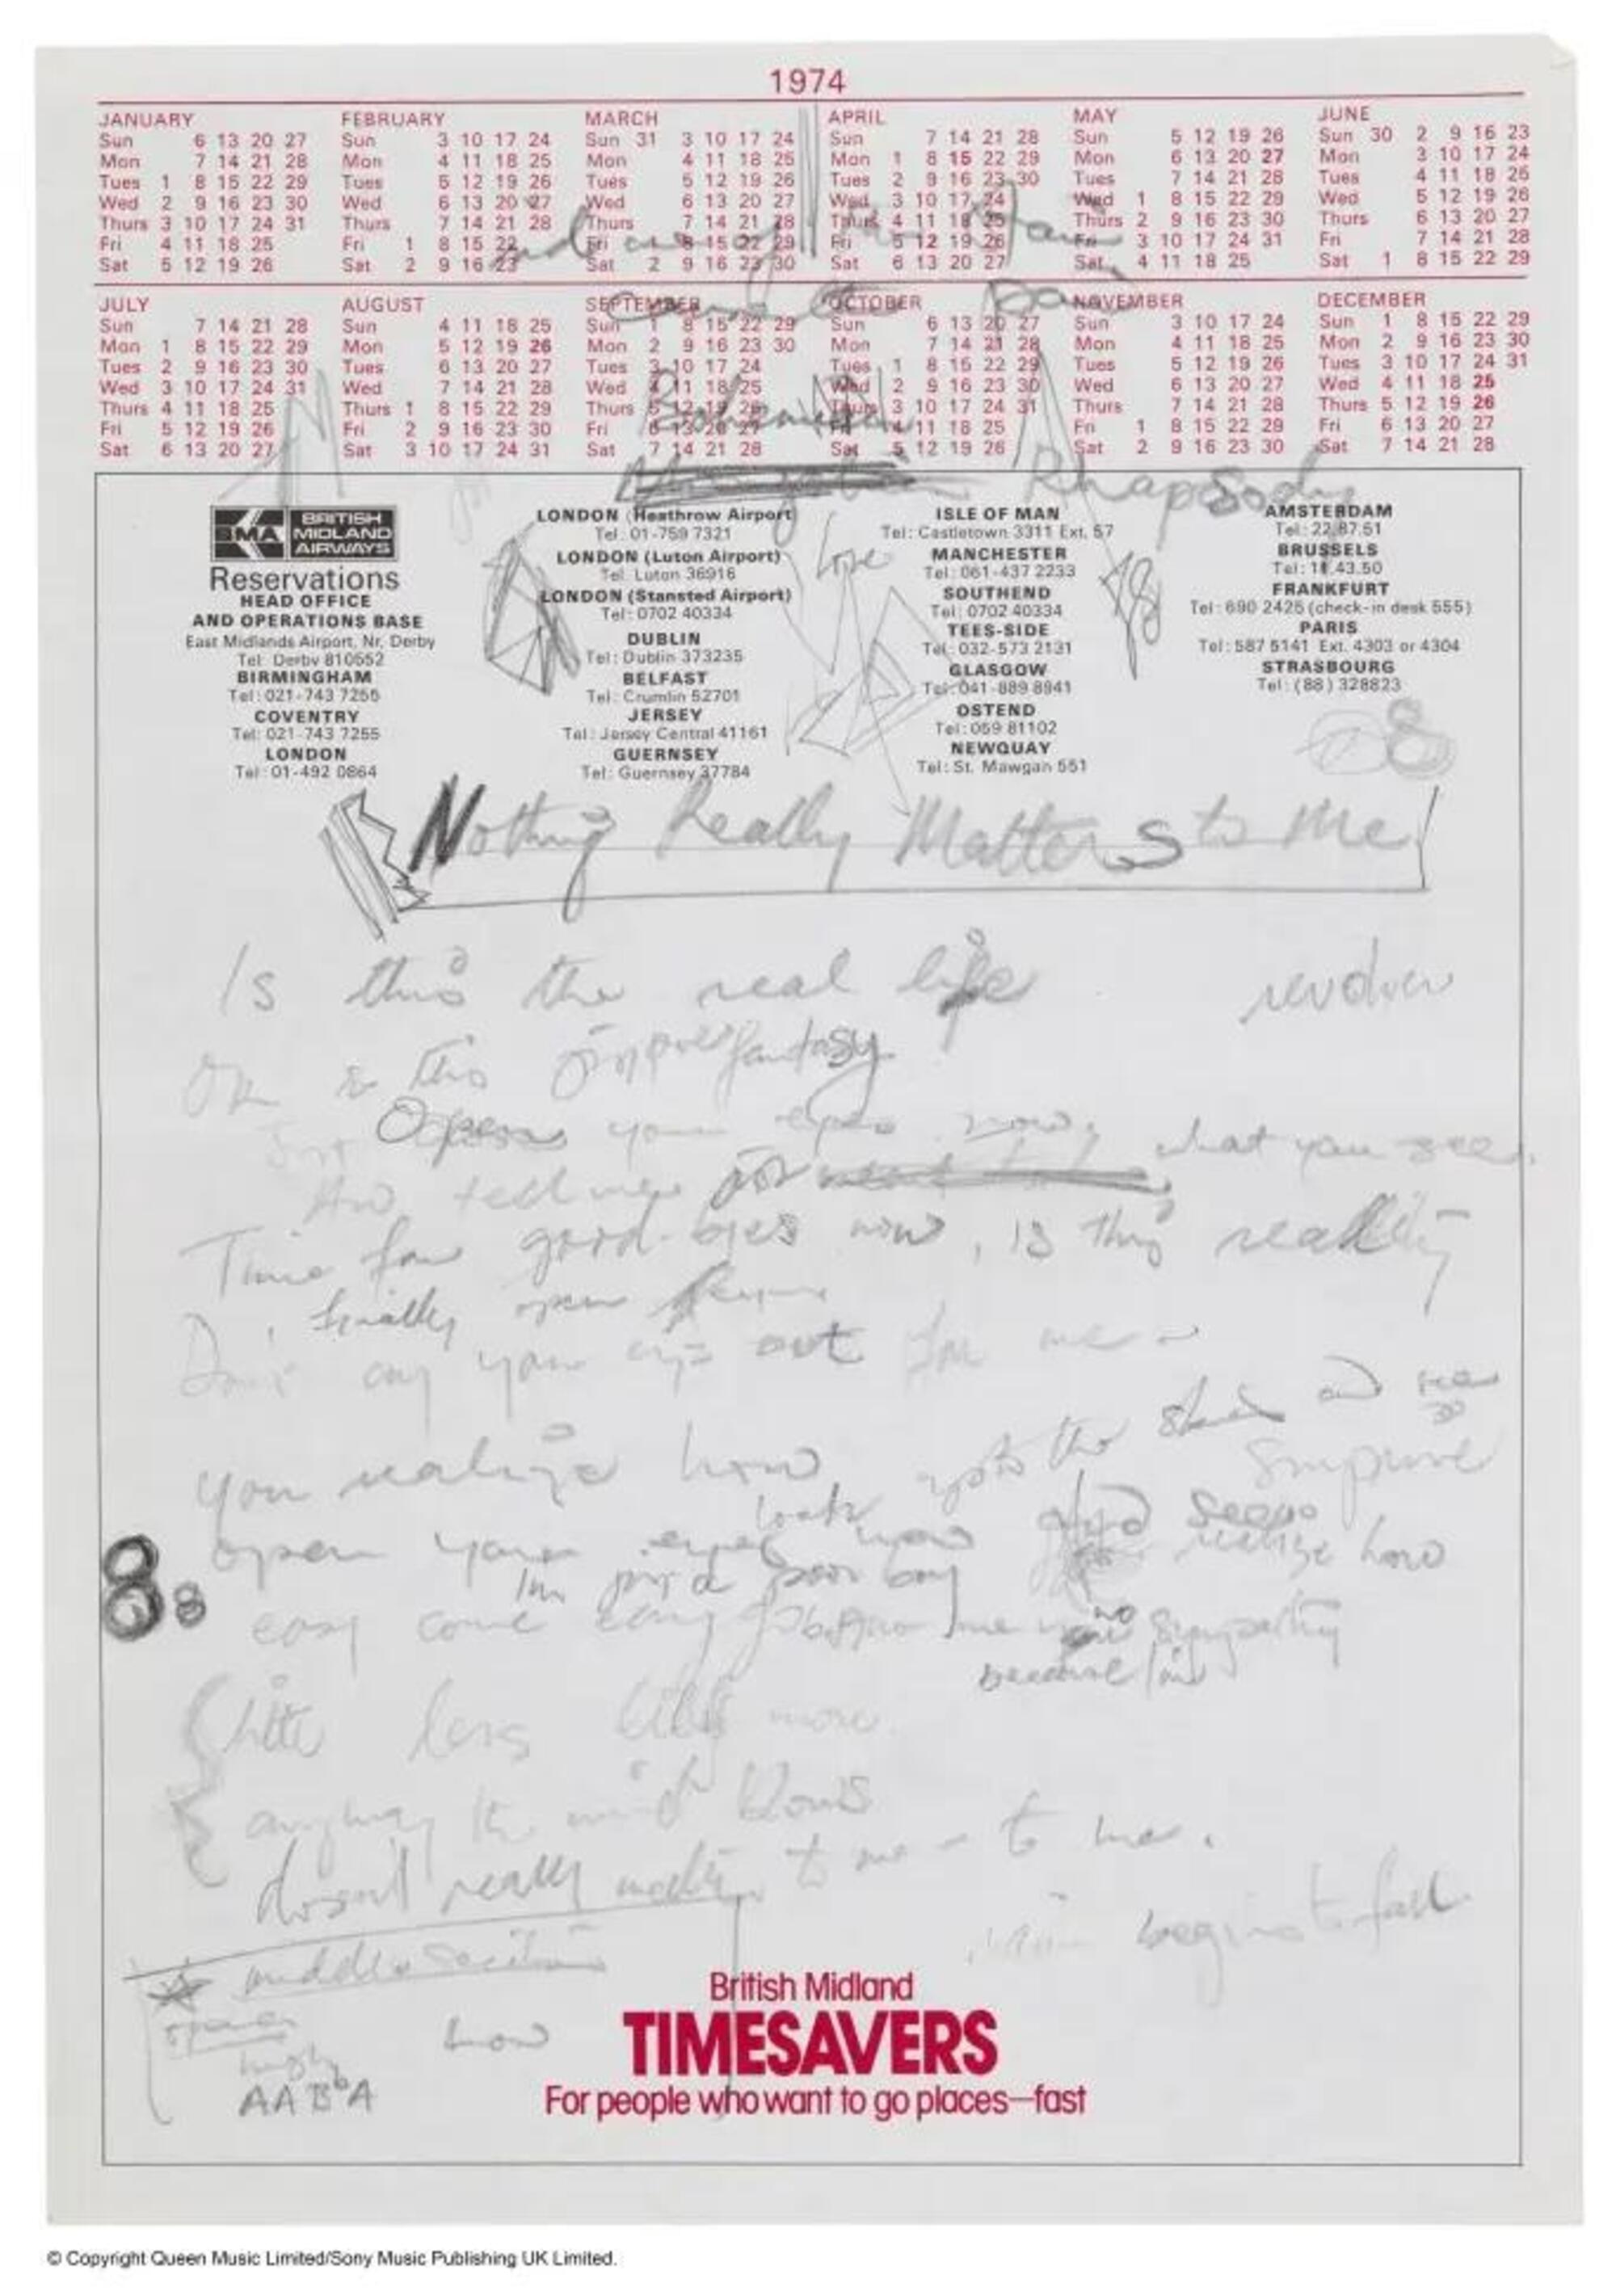 1974
JANUARY
Sun 6 13 20 27
Mon 7 14 21 28
Tues 1 8 15 22 29
Wed 2 9 16 23 30
Thurs 3 10 17 24 31
Fri 4 11 18 25
Sat 5 12 19 26
FEBRUARY
Sun 3 10 17 24
Mon 4 11 18 25
Tues 5 12 19 26
Wed 6 13 20 27
Thurs 7 14 21 28
Fri 1 8 15 22
Sat 2 9 16 23
MARCH
Sun 31 3 10 17 24
Mon 4 11 18 25
Tues 5 12 19 26
Wed 6 13 20 27
Thurs 7 14 21 28
Fri 1 8 15 22 29
Sat 2 9 16 23 30
APRIL
Sun 7 14 21 28
Mon 1 8 15 22 29
Tues 2 9 16 23 30
Wed 3 10 17 24
Thurs 4 11 18 25
Fri 5 12 19 26
Sat 6 13 20 27
MAY
Sun 5 12 19 26
Mon 6 13 20 27
Tues 7 14 21 28
Wed 1 8 15 22 29
Thurs 2 9 16 23 30
Fri 3 10 17 24 31
Sat 4 11 18 25
JUNE
Sun 30 2 9 16 23
Mon 3 10 17 24
Tues 4 11 18 25
Wed 5 12 19 26
Thurs 6 13 20 27
Fri 7 14 21 28
Sat 1 8 15 22 29
JULY
Sun 7 14 21 28
Mon 1 8 15 22 29
Tues 2 9 16 23 30
Wed 3 10 17 24 31
Thurs 4 11 18 25
Fri 5 12 19 26
Sat 6 13 20 27
AUGUST
Sun 4 11 18 25
Mon 5 12 19 26
Tues 6 13 20 27
Wed 7 14 21 28
Thurs 1 8 15 22 29
Fri 2 9 16 23 30
Sat 3 10 17 24 31
SEPTEMBER
Sun 1 8 15 22 29
Mon 2 9 16 23 30
Tues 3 10 17 24
Wed 4 11 18 25
Thurs 5 12 19 26
Fri 6 13 20 27
Sat 7 14 21 28
OCTOBER
Sun 6 13 20 27
Mon 7 14 21 28
Tues 1 8 15 22 29
Wed 2 9 16 23 30
Thurs 3 10 17 24 31
Fri 4 11 18 25
Sat 5 12 19 26
NOVEMBER
Sun 3 10 17 24
Mon 4 11 18 25
Tues 5 12 19 26
Wed 6 13 20 27
Thurs 7 14 21 28
Fri 1 8 15 22 29
Sat 2 9 16 23 30
DECEMBER
Sun 1 8 15 22 29
Mon 2 9 16 23 30
Tues 3 10 17 24 31
Wed 4 11 18 25
Thurs 5 12 19 26
Fri 6 13 20 27
Sat 7 14 21 28
Bohemian
Rhapsody
BMA BRITISH MIDLAND AIRWAYS
Reservations
HEAD OFFICE
AND OPERATIONS BASE
East Midlands Airport, Nr. Derby
Tel: Derby 810552
BIRMINGHAM
Tel: 021-743 7255
COVENTRY
Tel: 021-743 7255
LONDON
Tel: 01-492 0864
LONDON (Heathrow Airport)
Tel: 01-759 7321
LONDON (Luton Airport)
Tel: Luton 36916
LONDON (Stansted Airport)
Tel: 0702 40334
DUBLIN
Tel: Dublin 373235
BELFAST
Tel: Crumlin 52701
JERSEY
Tel: Jersey Central 41161
GUERNSEY
Tel: Guernsey 37784
ISLE OF MAN
Tel: Castletown 3311 Ext. 57
MANCHESTER
Tel: 061-437 2233
SOUTHEND
Tel: 0702 40334
TEES-SIDE
Tel: 032-573 2131
GLASGOW
Tel: 041-889 8941
OSTEND
Tel: 059 81102
NEWQUAY
Tel: St. Mawgan 551
AMSTERDAM
Tel: 22.87.51
BRUSSELS
Tel: 18.43.50
FRANKFURT
Tel: 690 2425 (check-in desk 555)
PARIS
Tel: 587 5141 Ext. 4303 or 4304
STRASBOURG
Tel: (88) 328823
Love
Nothing Really Matters to Me
Is this the real life
Or is this fantasy
Just Open your eyes now, what you see
And tell me
Time for good-byes now, is this reality
finally open
Don't cry your eyes out for me
You realize how up to the and see
look
open your eyes now and realize how
I'm just a poor boy
easy come easy go no sympathy
because I'm
little less little more
anyway the wind blows
doesn't really matter to me - to me.
begins to fall
middle section
how
high
AABbA
8 8
British Midland
TIMESAVERS
For people who want to go places—fast
© Copyright Queen Music Limited/Sony Music Publishing UK Limited.